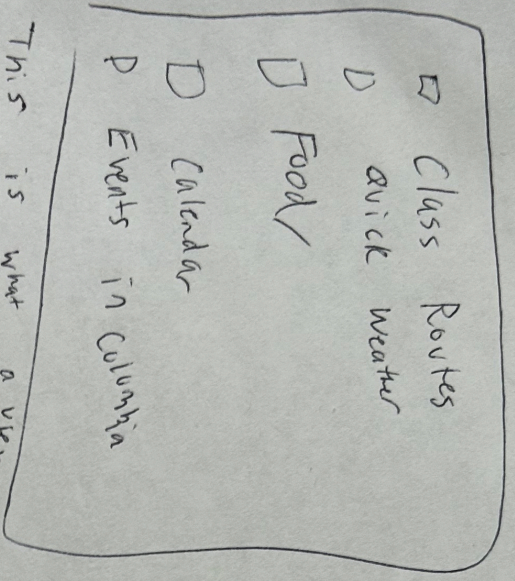 Class Routes
quick weather
Food
Calendar
Events in Columbia
This is what a